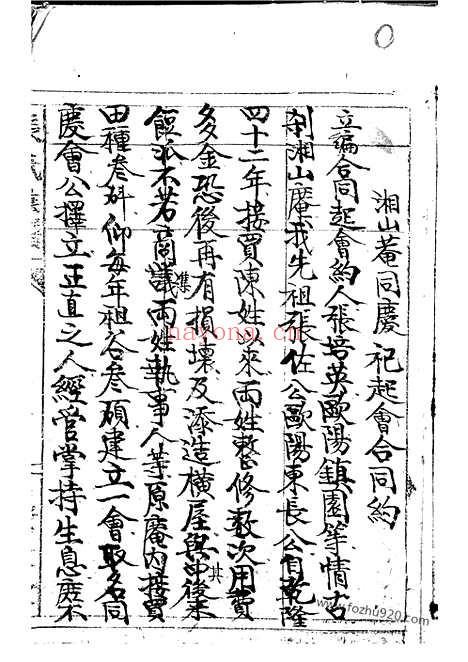 湘山菴同慶祀起會合同約
立編合同起會約人張培英歐陽鎮園等情
刹湘山庵我先祖張佐公歐陽東長公自乾隆
四十二年接買陳姓來兩姓整修數次用費
多金恐後再有損壞及添造橫屋與中後
其
餵派不若商議兩姓執事人等原庵內接買
集
田種叁斛仰每年租谷叁碩建立一會取名同
慶會公擇立正直之人經营掌持生息庶不
nayona.cn
www.fozhu920.com